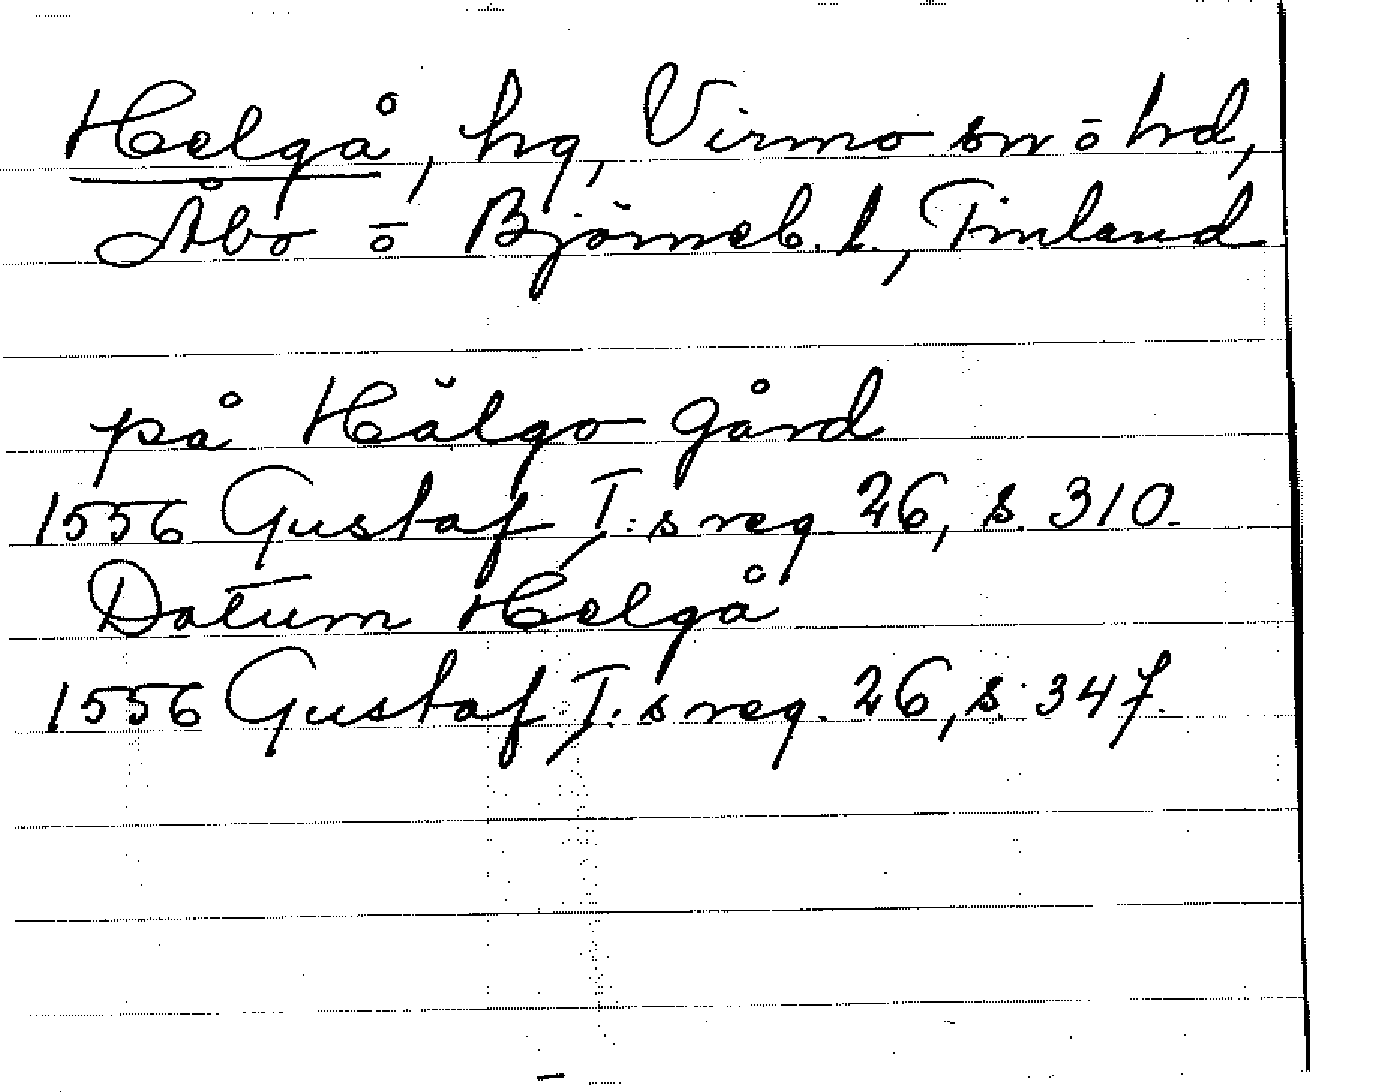 Helgå, hg, Virmo sn ō hd,
Åbo ō Björneb. l., Finland
på Hälgo gård
1556 Gustaf I:s reg 26, s. 310.
Datum Helgå
1556 Gustaf I:s reg. 26, s. 347.